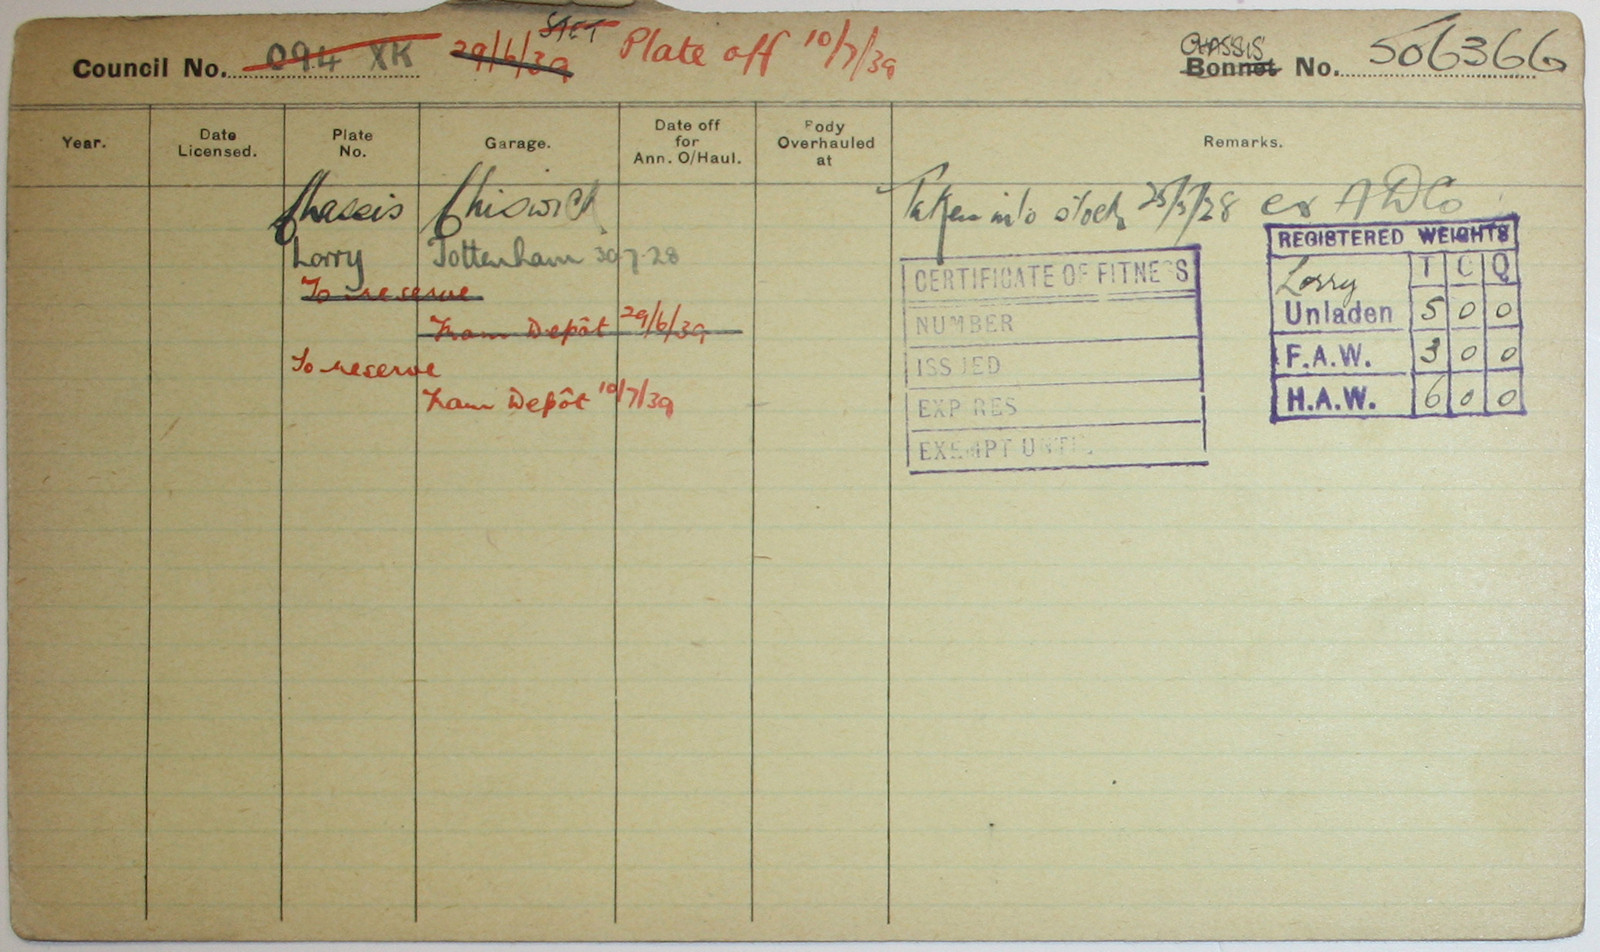 Council No. 094 XK 29/6/39 Plate off 10/7/39 CHASSIS Bonnet No. 506366
Year.
Date Licensed.
Plate No.
Garage.
Date off for Ann. O/Haul.
Body Overhauled at
Remarks.
Chassis Chiswick Taken into stock 25/5/28 ex ADCo
Lorry Tottenham 30-7-28
To reserve
Tram Depôt 29/6/39
To reserve
Tram Depôt 10/7/39
CERTIFICATE OF FITNESS
NUMBER
ISSUED
EXPIRES
EXEMPT UNTIL
REGISTERED WEIGHTS
Lorry T C Q
Unladen 5 0 0
F.A.W. 3 0 0
H.A.W. 6 0 0